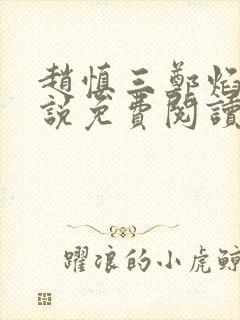 趙慎三鄭焰
說免費閱讀
躍浪的小虎鯨